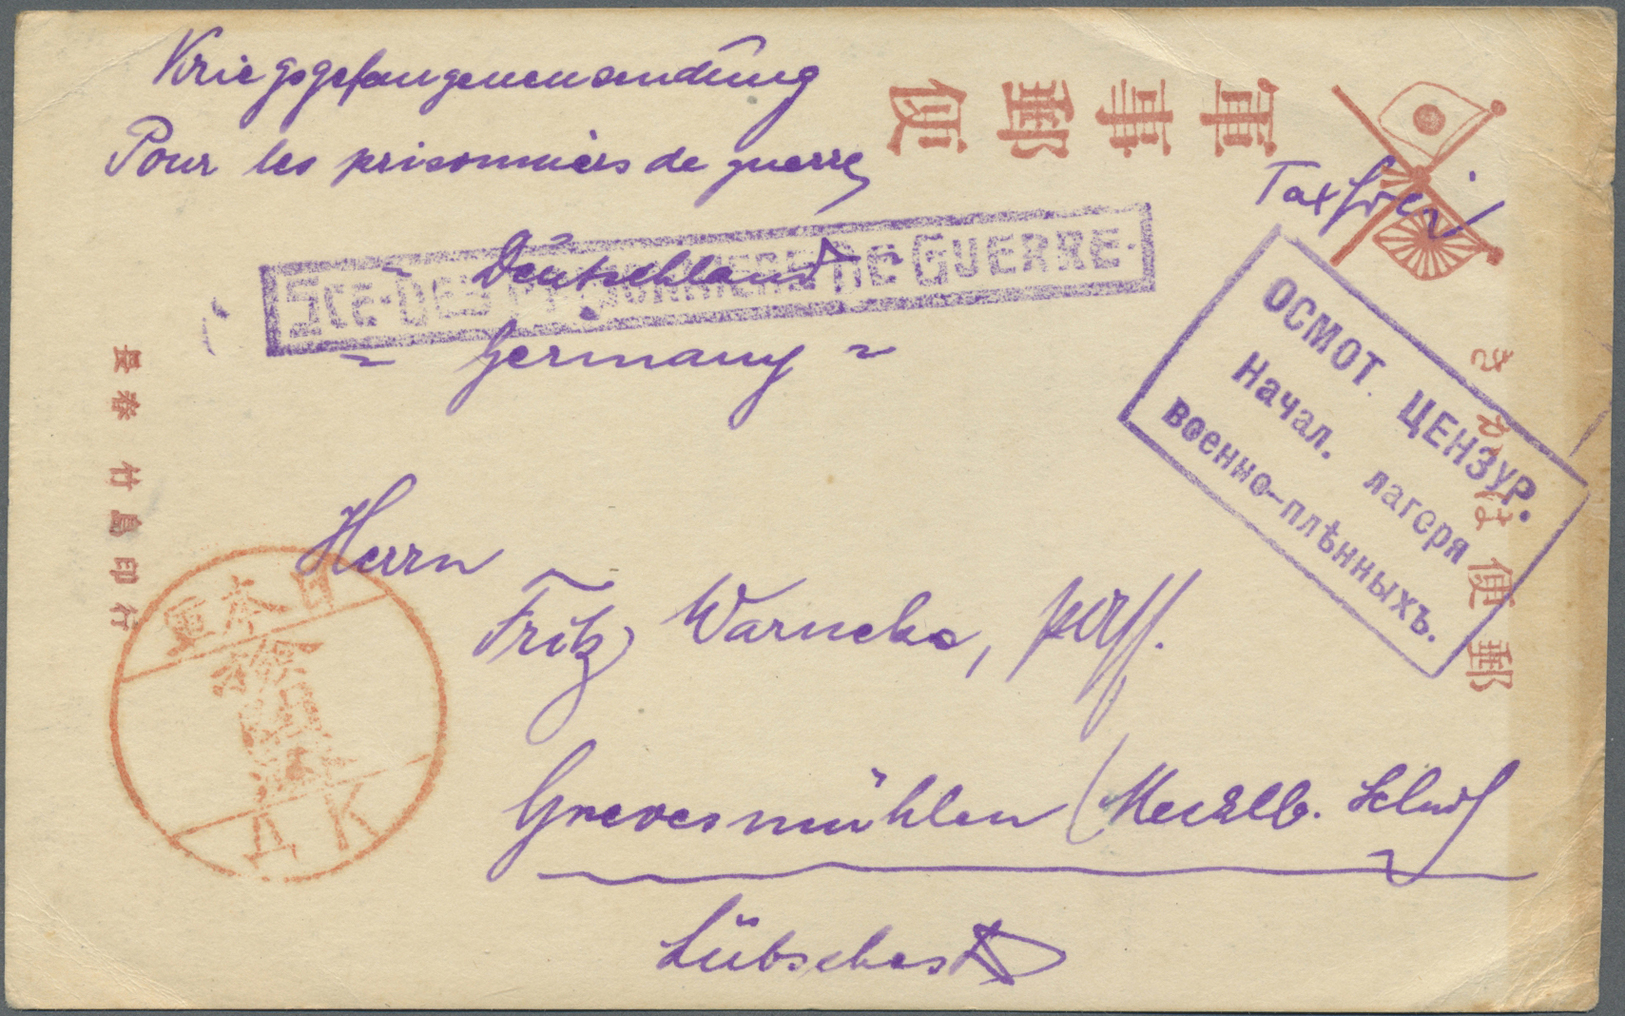 Kriegsgefangenensendung
Pour les prisonniers de guerre
軍事郵便
Taxfrei
Sce DES PRISONNIERS DE GUERRE
Deutschland
Germany
ОСМОТ. ЦЕНЗУР.
Начал. лагеря
военно-плѣнныхъ.
きかは便郵
長春 竹島印行
Herrn
Fritz Warncke,
Grevesmühlen (Mecklb.
日本軍
検閲済
Д К
Lübsches